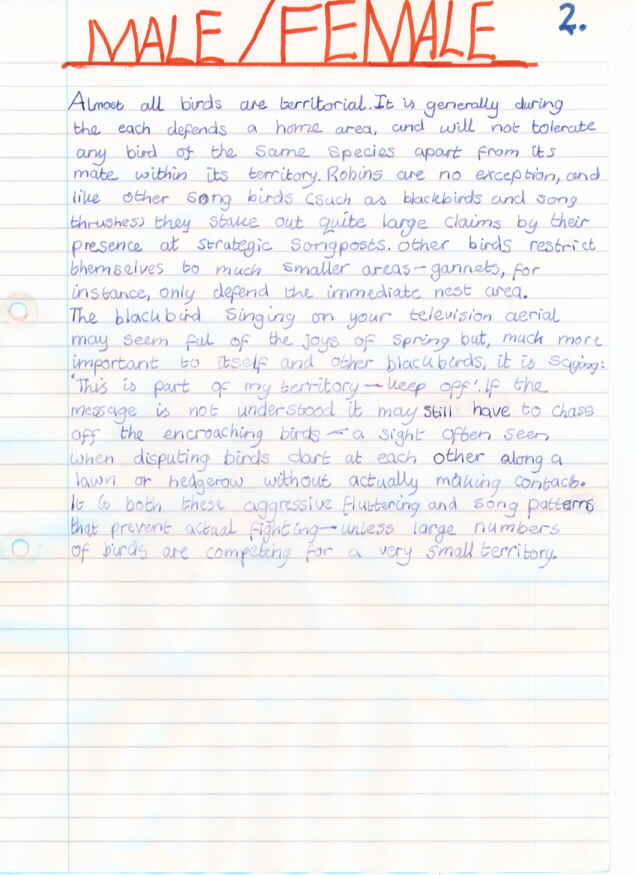 MALE/FEMALE
2.
Almost all birds are territorial. It is generally during
the each defends a home area, and will not tolerate
any bird of the same species apart from its
mate within its territory. Robins are no exception, and
like other song birds (such as blackbirds and song
thrushes) they stake out quite large claims by their
presence at strategic songposts. Other birds restrict
themselves to much smaller areas - gannets, for
instance, only defend the immediate nest area.
The blackbird singing on your television aerial
may seem ful of the joys of spring but, much more
important to itself and other blackbirds, it is saying:
'This is part of my territory - keep off'. If the
message is not understood it may still have to chase
off the encroaching birds - a sight often seen
when disputing birds dart at each other along a
lawn or hedgerow without actually making contact.
It is both these aggressive fluttering and song patterns
that prevent actual fighting - unless large numbers
of birds are competing for a very small territory.